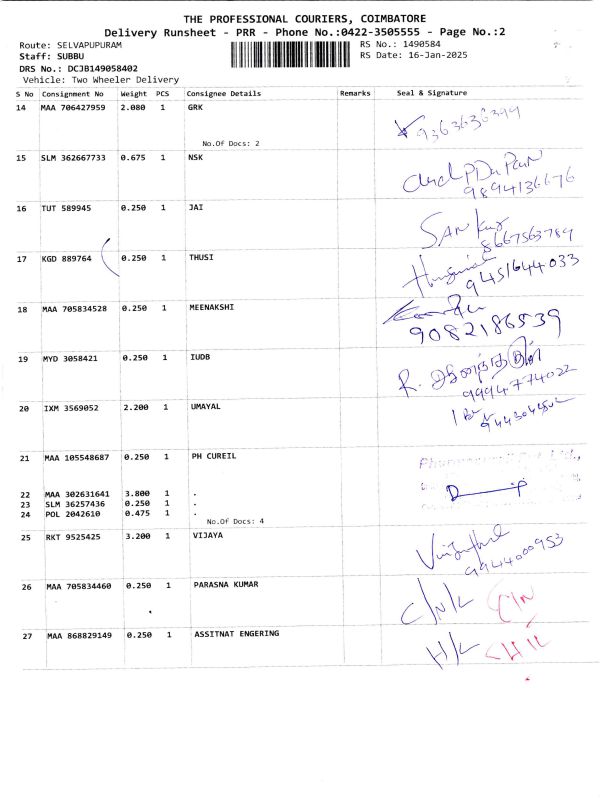 THE PROFESSIONAL COURIERS, COIMBATORE
Delivery Runsheet - PRR - Phone No.:0422-3505555 - Page No.:2
Route: SELVAPUPURAM
RS No.: 1490584
Staff: SUBBU
RS Date: 16-Jan-2025
DRS No.: DCJB149058402
Vehicle: Two Wheeler Delivery
S No Consignment No Weight PCS Consignee Details Remarks Seal & Signature
14 MAA 706427959 2.080 1 GRK 9363636399
No.Of Docs: 2
15 SLM 362667733 0.675 1 NSK
9894136676
16 TUT 589945 0.250 1 JAI
8667563789
17 KGD 889764 0.250 1 THUSI
9451644033
18 MAA 705834528 0.250 1 MEENAKSHI
9082186539
19 MYD 3058421 0.250 1 IUDB R.
9994774022
20 IXM 3569052 2.200 1 UMAYAL
21 MAA 105548687 0.250 1 PH CUREIL
22 MAA 302631641 3.800 1 .
23 SLM 36257436 0.250 1 .
24 POL 2042610 0.475 1 .
No.Of Docs: 4
25 RKT 9525425 3.200 1 VIJAYA
9944000953
26 MAA 705834460 0.250 1 PARASNA KUMAR C/N/L C/N
27 MAA 868829149 0.250 1 ASSITNAT ENGERING H/L